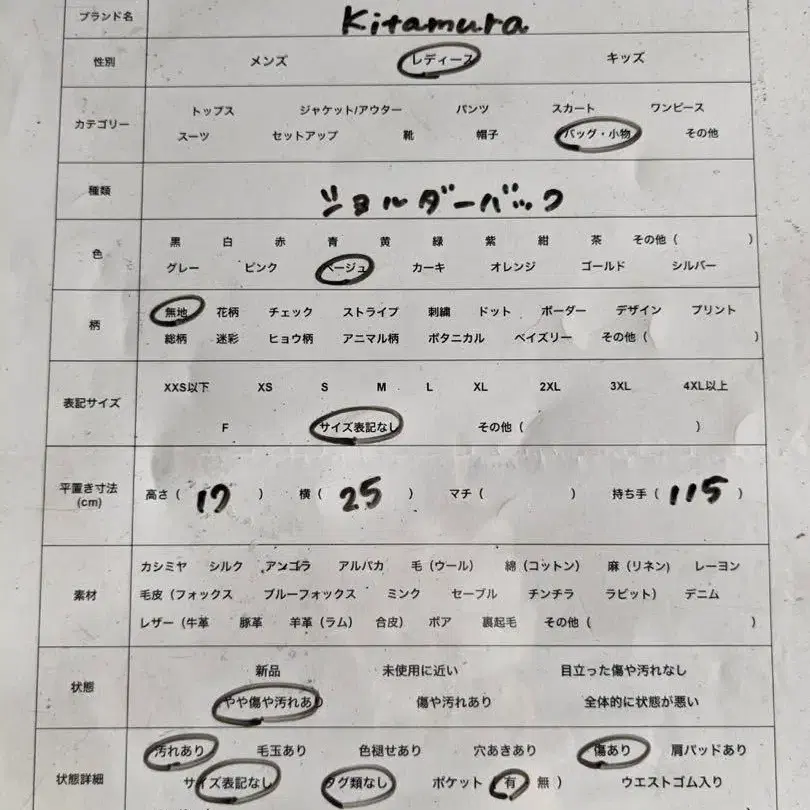 ブランド名 Kitamura
性別 メンズ レディース キッズ
カテゴリー
トップス ジャケット/アウター パンツ スカート ワンピース
スーツ セットアップ 靴 帽子 バッグ・小物 その他
種類 ショルダーバック
色
黒 白 赤 青 黄 緑 紫 紺 茶 その他（ ）
グレー ピンク ベージュ カーキ オレンジ ゴールド シルバー
柄
無地 花柄 チェック ストライプ 刺繍 ドット ボーダー デザイン プリント
総柄 迷彩 ヒョウ柄 アニマル柄 ボタニカル ペイズリー その他（ ）
表記サイズ
XXS以下 XS S M L XL 2XL 3XL 4XL以上
F サイズ表記なし その他（ ）
平置き寸法
(cm)
高さ（ 17 ）横（ 25 ） マチ（ ） 持ち手（ 115 ）
素材
カシミヤ シルク アンゴラ アルパカ 毛（ウール） 綿（コットン） 麻（リネン) レーヨン
毛皮（フォックス ブルーフォックス ミンク セーブル チンチラ ラビット） デニム
レザー（牛革 豚革 羊革（ラム） 合皮） ボア 裏起毛 その他（ ）
状態
新品 未使用に近い 目立った傷や汚れなし
やや傷や汚れあり 傷や汚れあり 全体的に状態が悪い
状態詳細
汚れあり 毛玉あり 色褪せあり 穴あきあり 傷あり 肩パッドあり
サイズ表記なし タグ類なし ポケット（ 有 無 ） ウエストゴム入り